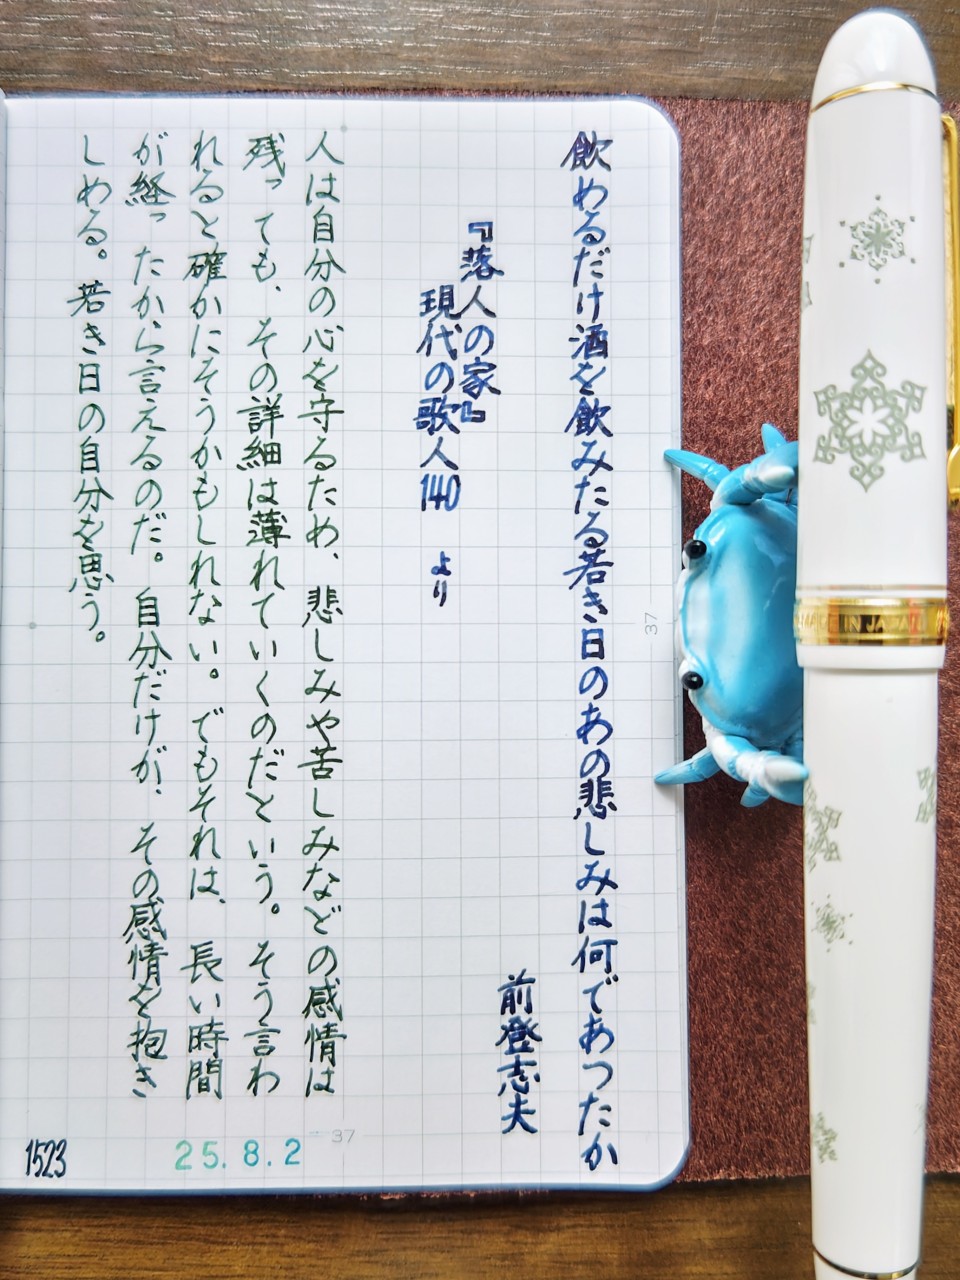 飲めるだけ酒を飲みたる若き日のあの悲しみは何であつたか
前登志夫
『落人の家』
現代の歌人140 より
人は自分の心を守るため、悲しみや苦しみなどの感情は
残っても、その詳細は薄れていくのだという。そう言わ
れると確かにそうかもしれない。でもそれは、長い時間
が経ったから言えるのだ。自分だけが、その感情を抱き
しめる。若き日の自分を思う。
37
37
25.8.2
1523
MADE IN JAPAN